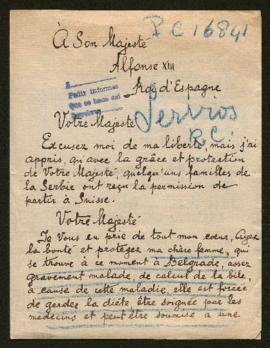 P C 16841
À Son Majesté
Alfonse XIII
Roi d'Espagne
Pedir informes
Que se hace así
Servios
R.C.
Votre Majesté
Excusez moi de ma liberté, mais j'ai
appris, qu'avec la grâce et protection
de Votre Majesté, quelqu'uns familles de
la Serbie ont reçu la permission de
partir à Suisse.
Votre Majesté
Je Vous en prie de tout mon coeur, ayez
la bonté et protégez ma chère femme, qui
se trouve à ce moment à Belgrade, assez
gravement malade, de calcul de la bile,
à cause de cette maladie, elle est forcée
de garder la diéte, être soignée par les
médecins et peut être soumise a une